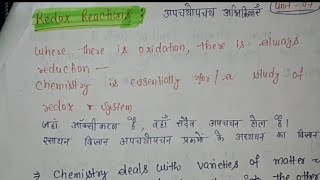 Redox Reactions : अपचयोपचय अभिक्रियाएँ Unit - 07
where there is oxidation, there is always
reduction —
Chemistry is essentially for/a study of
redox & system
जहाँ ऑक्सीकरण है, वहाँ सदैव अपचयन होता है।
रसायन विज्ञान अपचयोपचयन प्रक्रमों के अध्ययन का विज्ञान
⇒ Chemistry deals with varieties of matter
into the other